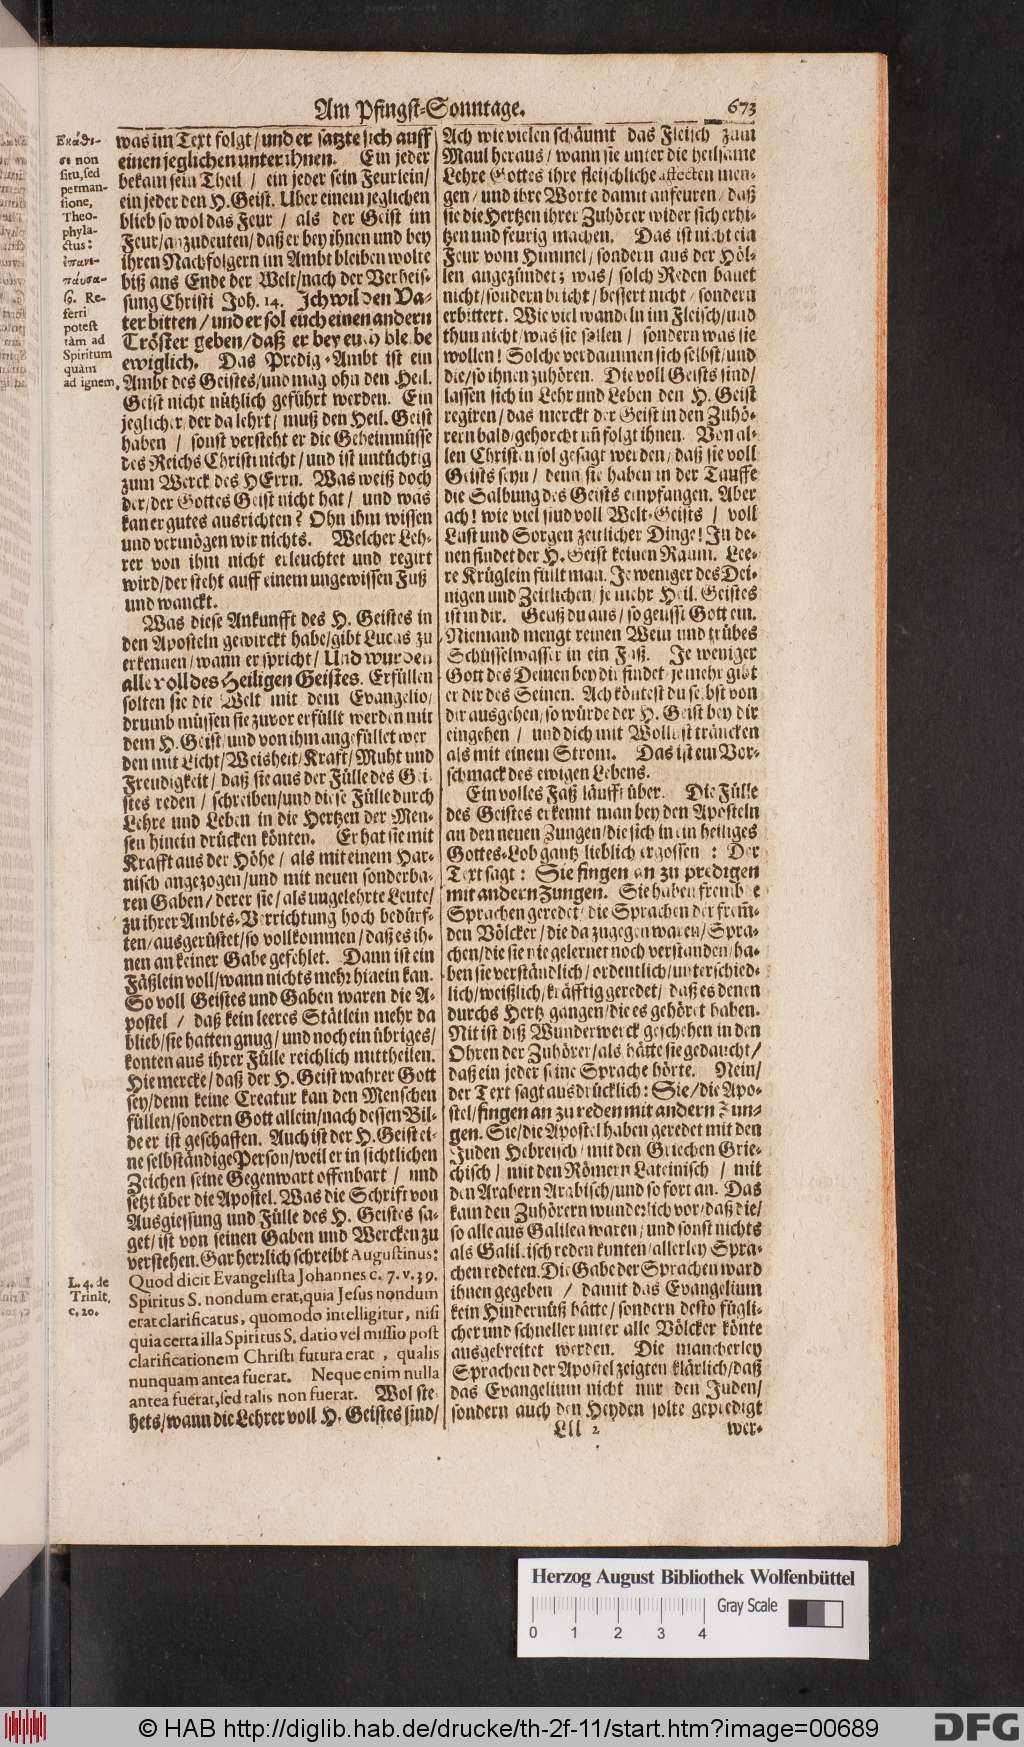 Am Pfingst-Sonntage. 673
Εκάθι-
σε non
situ, sed
perman-
sione,
Theo-
phyla-
ctus:
ἐπανε-
παύσα-
το. Re-
ferri
potest
tàm ad
Spiritum
quàm
ad ignem.
was im Text folgt/ und er satzte sich auff
einen jeglichen unter ihnen. Ein jeder
bekam sein Theil/ ein jeder sein Feurlein/
ein jeder den H. Geist. Uber einem jeglichen
blieb so wol das Feur/ als der Geist im
Feur/ anzudeuten/ daß er bey ihnen und bey
ihren Nachfolgern im Ambt bleiben wolte
biß ans Ende der Welt/ nach der Verheis-
sung Christi Joh. 14. Ich wil den Va-
ter bitten/ und er sol euch einen andern
Tröster geben/ daß er bey euch bleibe
ewiglich. Das Predig-Ambt ist ein
Ambt des Geistes/ und mag ohn den Heil.
Geist nicht nützlich geführt werden. Ein
jeglicher/ der da lehrt/ muß den Heil. Geist
haben/ sonst versteht er die Geheimnüsse
des Reichs Christi nicht/ und ist untüchtig
zum Werck des HErrn. Was weiß doch
der/ der Gottes Geist nicht hat/ und was
kan er gutes ausrichten? Ohn ihm wissen
und vermögen wir nichts. Welcher Leh-
rer von ihm nicht erleuchtet und regirt
wird/ der steht auff einem ungewissen Fuß
und wanckt.
Was diese Ankunfft des H. Geistes in
den Aposteln gewirckt habe/ gibt Lucas zu
erkennen/ wann er spricht/ Und wurden
alle voll des Heiligen Geistes. Erfüllen
solten sie die Welt mit dem Evangelio/
drumb müssen sie zuvor erfüllt werden mit
dem H. Geist/ und von ihm angefüllet wer
den mit Licht/ Weisheit/ Kraft/ Muht und
Freudigkeit/ daß sie aus der Fülle des Gei-
stes reden/ schreiben/ und diese Fülle durch
Lehre und Leben in die Hertzen der Men-
schen hinein drücken könten. Er hat sie mit
Krafft aus der Höhe/ als mit einem Har-
nisch angezogen/ und mit neuen sonderba-
ren Gaben/ derer sie/ als ungelehrte Leute/
zu ihrer Ambts-Verrichtung hoch bedürf-
ten/ ausgerüstet/ so vollkommen/ daß es ih-
nen an keiner Gabe gefehlet. Dann ist ein
Fäßlein voll/ wann nichts mehr hinein kan.
So voll Geistes und Gaben waren die A-
postel/ daß kein leeres Stätlein mehr da
blieb/ sie hatten gnug/ und noch ein übriges/
konten aus ihrer Fülle reichlich mittheilen.
Hie mercke/ daß der H. Geist wahrer Gott
sey/ denn keine Creatur kan den Menschen
füllen/ sondern Gott allein/ nach dessen Bil-
de er ist geschaffen. Auch ist der H. Geist ei-
ne selbständige Person/ weil er in sichtlichen
Zeichen seine Gegenwart offenbart/ und
setzt über die Apostel. Was die Schrift von
Ausgiessung und Fülle des H. Geistes sa-
get/ ist von seinen Gaben und Wercken zu
verstehen. Gar hertzlich schreibt Augustinus:
L. 4. de
Trinit.
c. 20.
Quod dicit Evangelista Johannes c. 7. v. 39.
Spiritus S. nondum erat, quia Jesus nondum
erat clarificatus, quomodo intelligitur, nisi
quia certa illa Spiritus S. datio vel missio post
clarificationem Christi futura erat, qualis
nunquam antea fuerat. Neque enim nulla
antea fuerat, sed talis non fuerat. Wol ste
hets/ wann die Lehrer voll H. Geistes sind/
Ach wie vielen schäumt das Fleisch zum
Maul heraus/ wann sie unter die heilsame
Lehre Gottes ihre fleischliche affecten men-
gen/ und ihre Worte damit anfeuren/ daß
sie die Hertzen ihrer Zuhörer wider sich erhi-
tzen und feurig machen. Das ist nicht ein
Feur vom Himmel/ sondern aus der Höl-
len angezündet; was/ solch Reden bauet
nicht/ sondern bricht/ bessert nicht/ sondern
erbittert. Wie viel wandeln im Fleisch/ und
thun nicht/ was sie sollen/ sondern was sie
wollen! Solche verdammen sich selbst/ und
die/ so ihnen zuhören. Die voll Geists sind/
lassen sich in Lehr und Leben den H. Geist
regiren/ das merckt der Geist in den Zuhö-
rern bald/ gehorcht uñ folgt ihnen. Von al-
len Christen sol gesagt werden/ daß sie voll
Geists seyn/ denn sie haben in der Tauffe
die Salbung des Geists empfangen. Aber
ach! wie viel sind voll Welt-Geists/ voll
Lust und Sorgen zeitlicher Dinge! In de-
nen findet der H. Geist keinen Raum. Lee-
re Krüglein füllt man. Je weniger des Dei-
nigen und Zeitlichen/ je mehr Heil. Geistes
ist in dir. Geuß du aus/ so geusst Gott ein.
Niemand mengt reinen Wein und trübes
Schüsselwasser in ein Faß. Je weniger
Gott des Deinen bey dir findet/ je mehr gibt
er dir des Seinen. Ach köntest du selbst von
dir ausgehen/ so würde der H. Geist bey dir
eingehen/ und dich mit Wollust träncken
als mit einem Strom. Das ist ein Vor-
schmack des ewigen Lebens.
Ein volles Faß läufft über. Die Fülle
des Geistes erkennt man bey den Aposteln
an den neuen Zungen/ die sich in ein heiliges
Gottes-Lob gantz lieblich ergossen: Der
Text sagt: Sie fingen an zu predigen
mit andern Zungen. Sie haben frembde
Sprachen geredet/ die Sprachen der frem̃-
den Völcker/ die da zugegen waren/ Spra-
chen/ die sie nie gelernet noch verstanden/ ha-
ben sie verständlich/ ordentlich/ unterschied-
lich/ weißlich/ kräfftig geredet/ daß es denen
durchs Hertz gangen/ die es gehöret haben.
Nit ist diß Wunderwerck geschehen in den
Ohren der Zuhörer/ als hätte sie gedaucht/
daß ein jeder seine Sprache hörte. Nein/
der Text sagt ausdrücklich: Sie/ die Apo-
stel/ fingen an zu reden mit andern Zun-
gen. Sie/ die Apostel haben geredet mit den
Juden Hebreisch/ mit den Griechen Grie-
chisch/ mit den Römern Lateinisch/ mit
den Arabern Arabisch/ und so fort an. Das
kam den Zuhörern wunderlich vor/ daß die/
so alle aus Galilea waren/ und sonst nichts
als Galileisch reden kunten/ allerley Spra-
chen redeten. Die Gabe der Sprachen ward
ihnen gegeben/ damit das Evangelium
kein Hindernüß hätte/ sondern desto fügli-
cher und schneller unter alle Völcker könte
ausgebreitet werden. Die mancherley
Sprachen der Apostel zeigten klärlich/ daß
das Evangelium nicht nur den Juden/
sondern auch den Heyden solte gepredigt
Lll 2 wer-
Herzog August Bibliothek Wolfenbüttel
Gray Scale
0 1 2 3 4
© HAB http://diglib.hab.de/drucke/th-2f-11/start.htm?image=00689
DFG